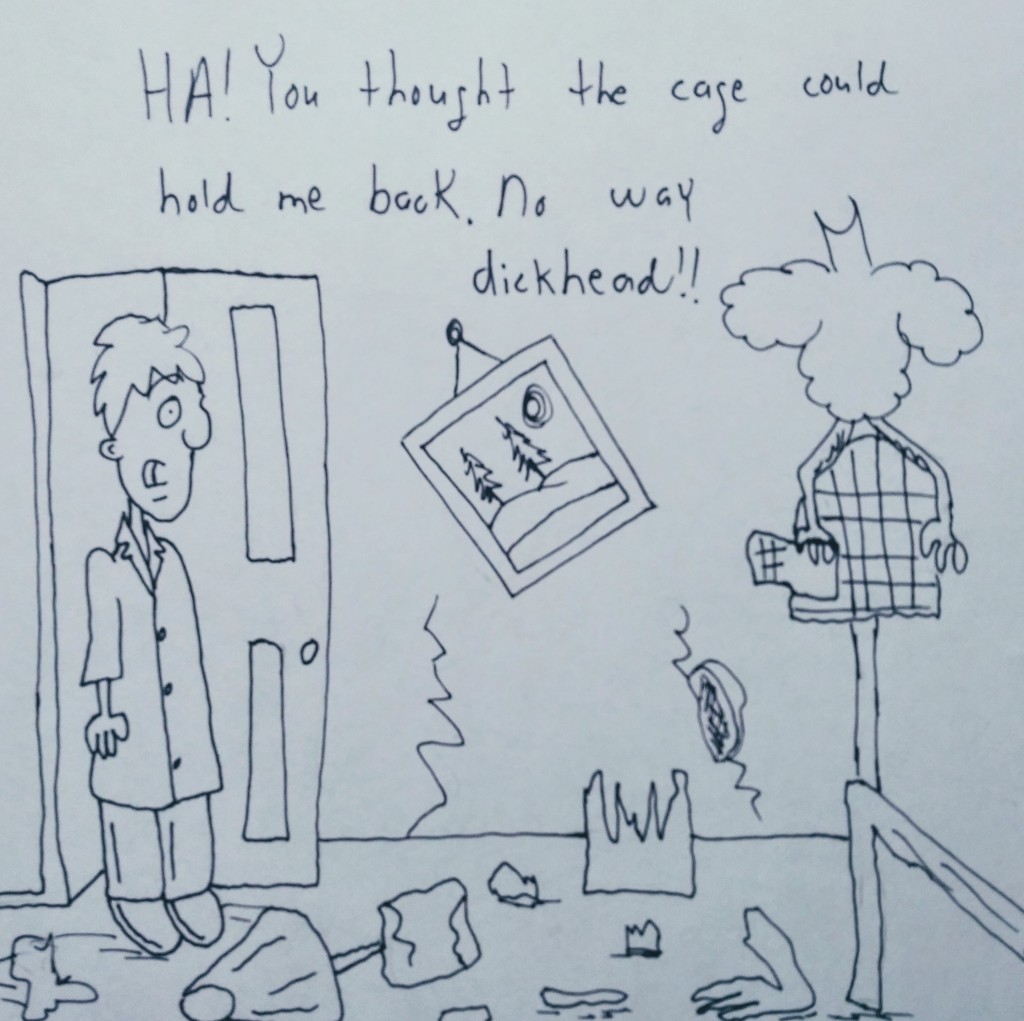 HA! You thought the cage could
hold me back. No way
dickhead!!